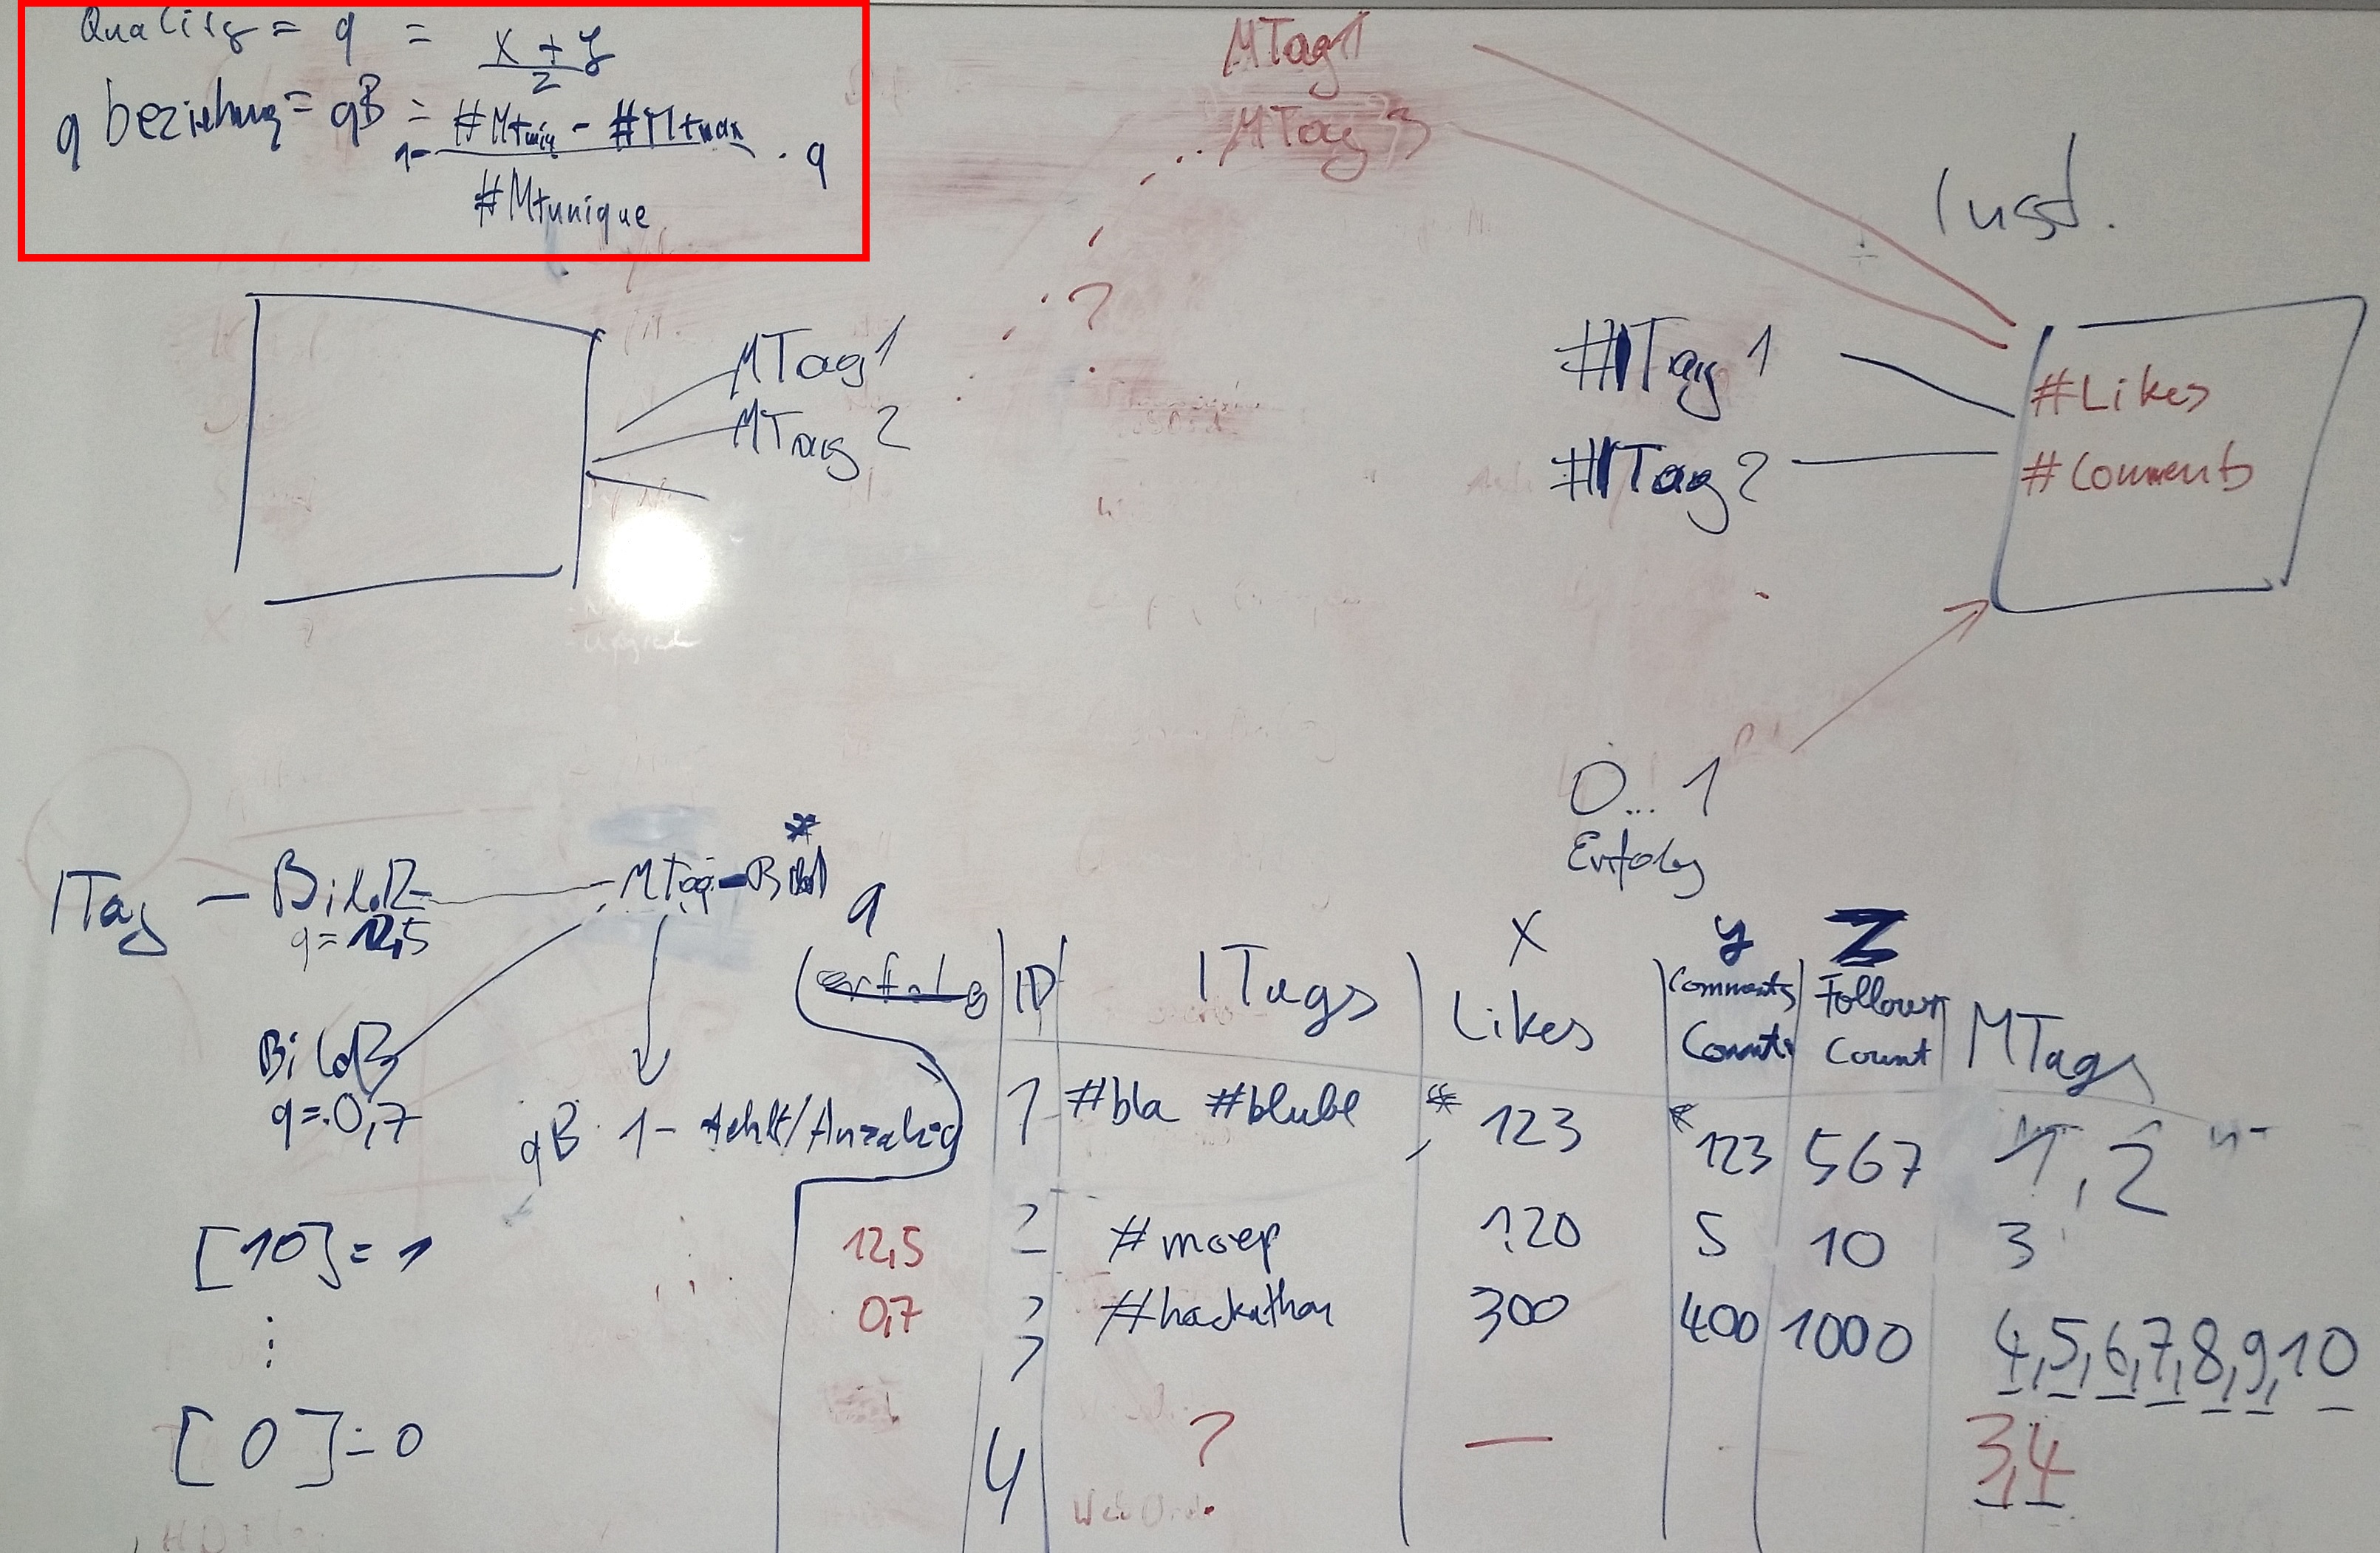 Quality = q = x + y
2
q beziehung = qB = 1- #Mtmin - #Mtmax · q
#Mtunique
MTag 1
MTag 3
?
MTag 1
MTag 2
#ITag 1
#ITag 2
#Likes
#Comments
0... 1
Erfolg
ITag - Bild2 - MTag-Bild *
q = 12,5
Bild3
q = 0,7
qB 1- fehlt/Anzahl
[10] = 1
⋮
[0] = 0
q x y z
erfolg ID ITags Likes Comments Count Follower Count MTags
1 #bla #blubb 123 123 567 1, 2
12,5 2 #moep 120 5 10 3
0,7 3 #hackathon 300 400 1000 4,5,6,7,8,9,10
4 ? — 3,4